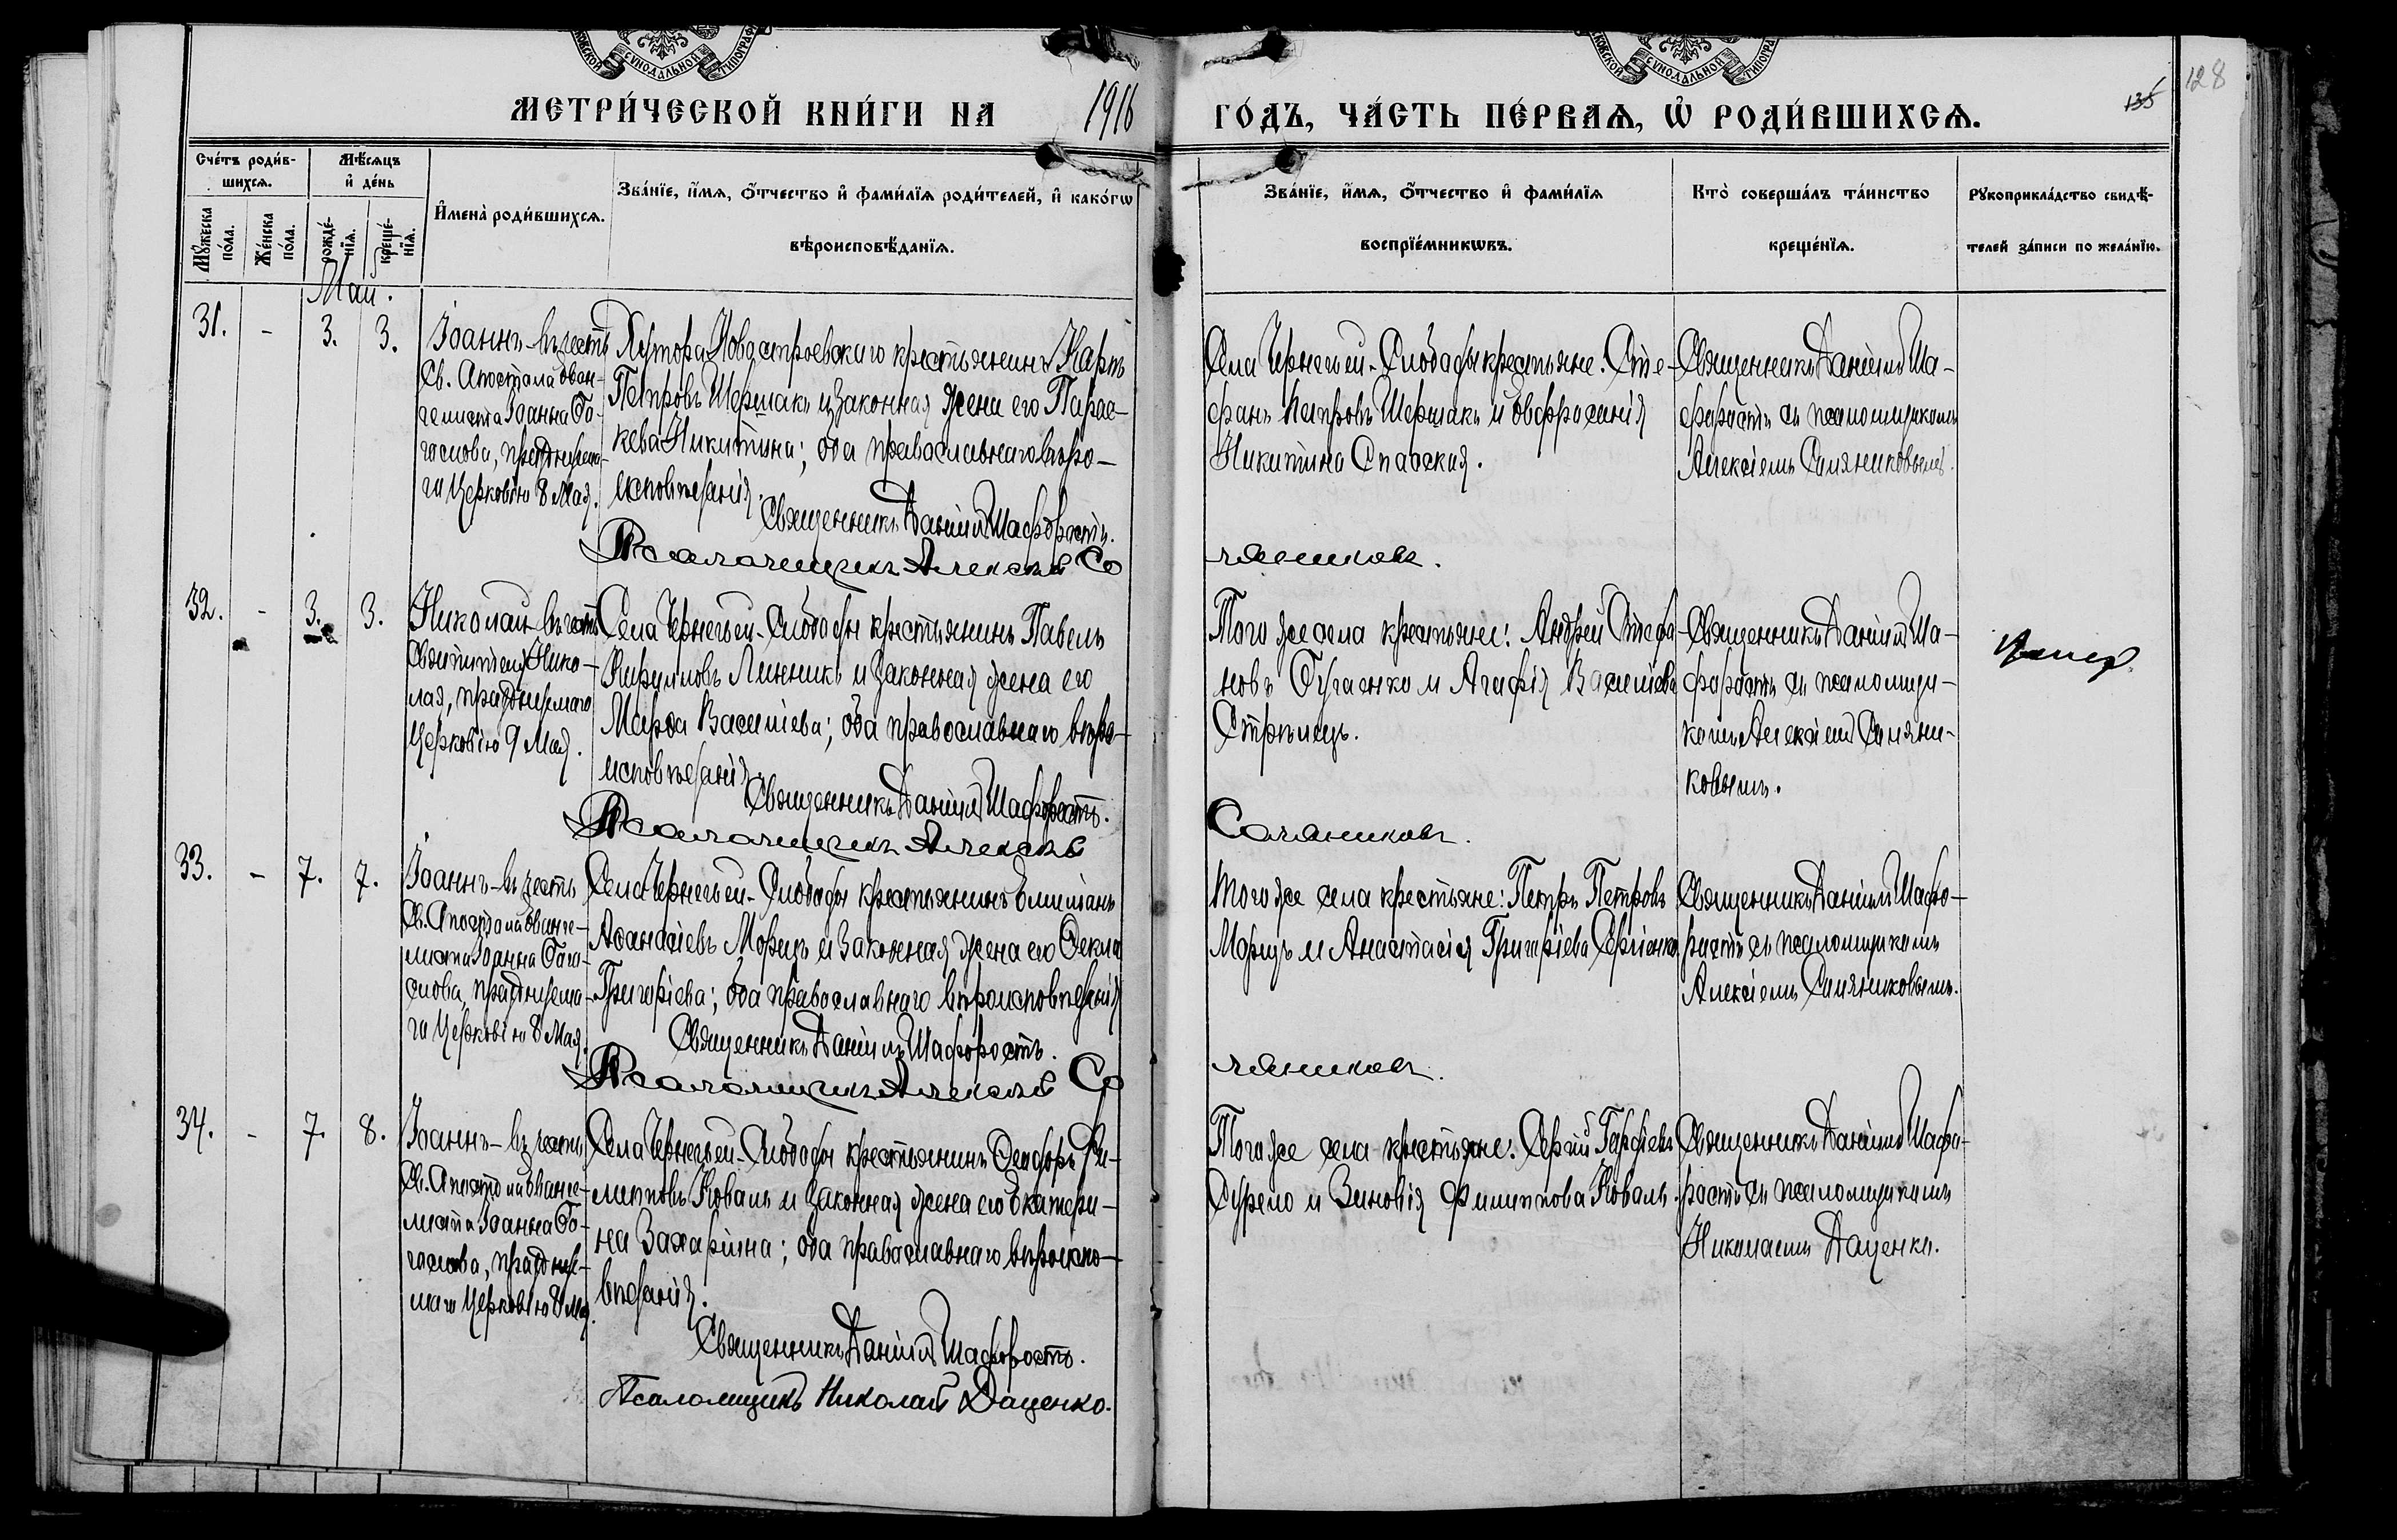 МЕТРИ́ЧЕСКОЙ КНИ́ГИ НА 1916 ГО́ДЪ, ЧА́СТЬ ПЕ́РВАѦ, Ѡ҆ РОДИ́ВШИХСѦ.
135
128
Сче́тъ роди́в-
шихсѧ.
Мѣ́сѧцъ
и҆ де́нь
Мꙋ́жеска
по́ла.
Же́нска
по́ла.
рожде́-
нїѧ.
креще́-
нїѧ.
И҆мена̀ роди́вшихсѧ.
Зва́нїе, и҆́мѧ, ѻ҆́тчество и҆ фами́лїѧ роди́телей, и҆ како́гѡ
вѣроисповѣ́данїѧ.
Зва́нїе, и҆́мѧ, ѻ҆́тчество и҆ фами́лїѧ
воспрїе́мникѡвъ.
Кто̀ соверша́лъ та́инство
креще́нїѧ.
Рꙋкоприкла́дство свидѣ́-
телей за́писи по жела́нїю.
Май.
31.
-
3.
3.
Іоаннъ-въ честь
Св. Апостола Еван-
гелиста Іоанна Бо-
гослова, празднуема-
го Церковію 8 Мая.
Хутора Новостроевскаго крестьянинъ Карпъ
Петровъ Шершакъ и законная жена его Парас-
кева Никитина; оба православнаго вѣро-
исповѣданія.
Священникъ Даніилъ Шафоростъ.
Псаломщикъ Алексѣй Со
Села Чернечьей-Слободы крестьяне: Сте-
фанъ Петровъ Шершакъ и Евфросинія
Никитина Спасская.
ляниковъ.
Священникъ Даніилъ Ша-
форостъ съ псаломщикомъ
Алексіемъ Соляниковымъ.
32.
-
3.
3.
Николай-въ честь
Святителя Нико-
лая, празднуемаго
Церковію 9 Мая.
Села Чернечьей-Слободы крестьянинъ Павелъ
Кирилловъ Линникъ и законная жена его
Марѳа Васильева; оба православнаго вѣро-
исповѣданія.
Священникъ Даніилъ Шафоростъ.
Псаломщикъ Алексѣй
Того же села крестьяне: Андрей Стефа-
новъ и Агафія Васильева
Стрѣлецъ.
Соляниковъ.
Священникъ Даніилъ Ша-
форостъ съ псаломщи-
комъ Алексіемъ Соляни-
ковымъ.
33.
-
7.
7.
Іоаннъ-въ честь
Св. Апостола Еванге-
листа Іоанна Бого-
слова, празднуема-
го Церковію 8 Мая.
Села Чернечьей-Слободы крестьянинъ Емиліанъ
Аѳанасіевъ Морецъ и законная жена его Ѳекла
Григоріева; оба православнаго вѣроисповѣданія
Священникъ Даніилъ Шафоростъ.
Псаломщикъ Алексѣй Со
Того же села крестьяне: Петръ Петровъ
Морецъ и Анастасія Григоріева Сергіенко
ляниковъ.
Священникъ Даніилъ Шафо-
ростъ съ псаломщикомъ
Алексіемъ Соляниковымъ.
34.
-
7.
8.
Іоаннъ-въ честь
Св. Апостола Еванге-
листа Іоанна Бо-
гослова, праздну-
маго Церковію 8 Мая.
Села Чернечьей-Слободы крестьянинъ Ѳеодоръ Фи-
липповъ Коваль и законная жена его Екатери-
на Захаріина; оба православнаго вѣроиспо-
вѣданія.
Священникъ Даніилъ Шафоростъ.
Псаломщикъ Николай Даценко.
Того же села крестьяне: Сергій
и Зиновія Филиппова Коваль.
Священникъ Даніилъ Шафо-
ростъ съ псаломщикомъ
Николаемъ Даценко.